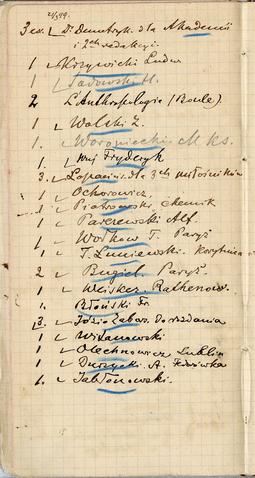 3 ex. Dr Demetryk. dla Akademii
i 2ch redakcyi.
1 Krzywicki Ludw
1 Sadowski H.
2 L'Anthropologie (Boule)
1 Wolski Z.
1 Woroniecki M Ks.
1. Fryderyk
3. dla 3ch miłośników
1 Ochorowicz.
1 Piotrowski chemik
1 Parczewski Alf.
1 Wołkow T. Paryż
1 J. Luniewski. Korytnica
2 Bugiel. Paryż.
1 Weisker. Rathenow.
1. Błoński Fr.
3. Józio Zabor. Do rozdania
1 Witanowski
1 Olechnowicz Lublin
1 A.
1. Jabłonowski.